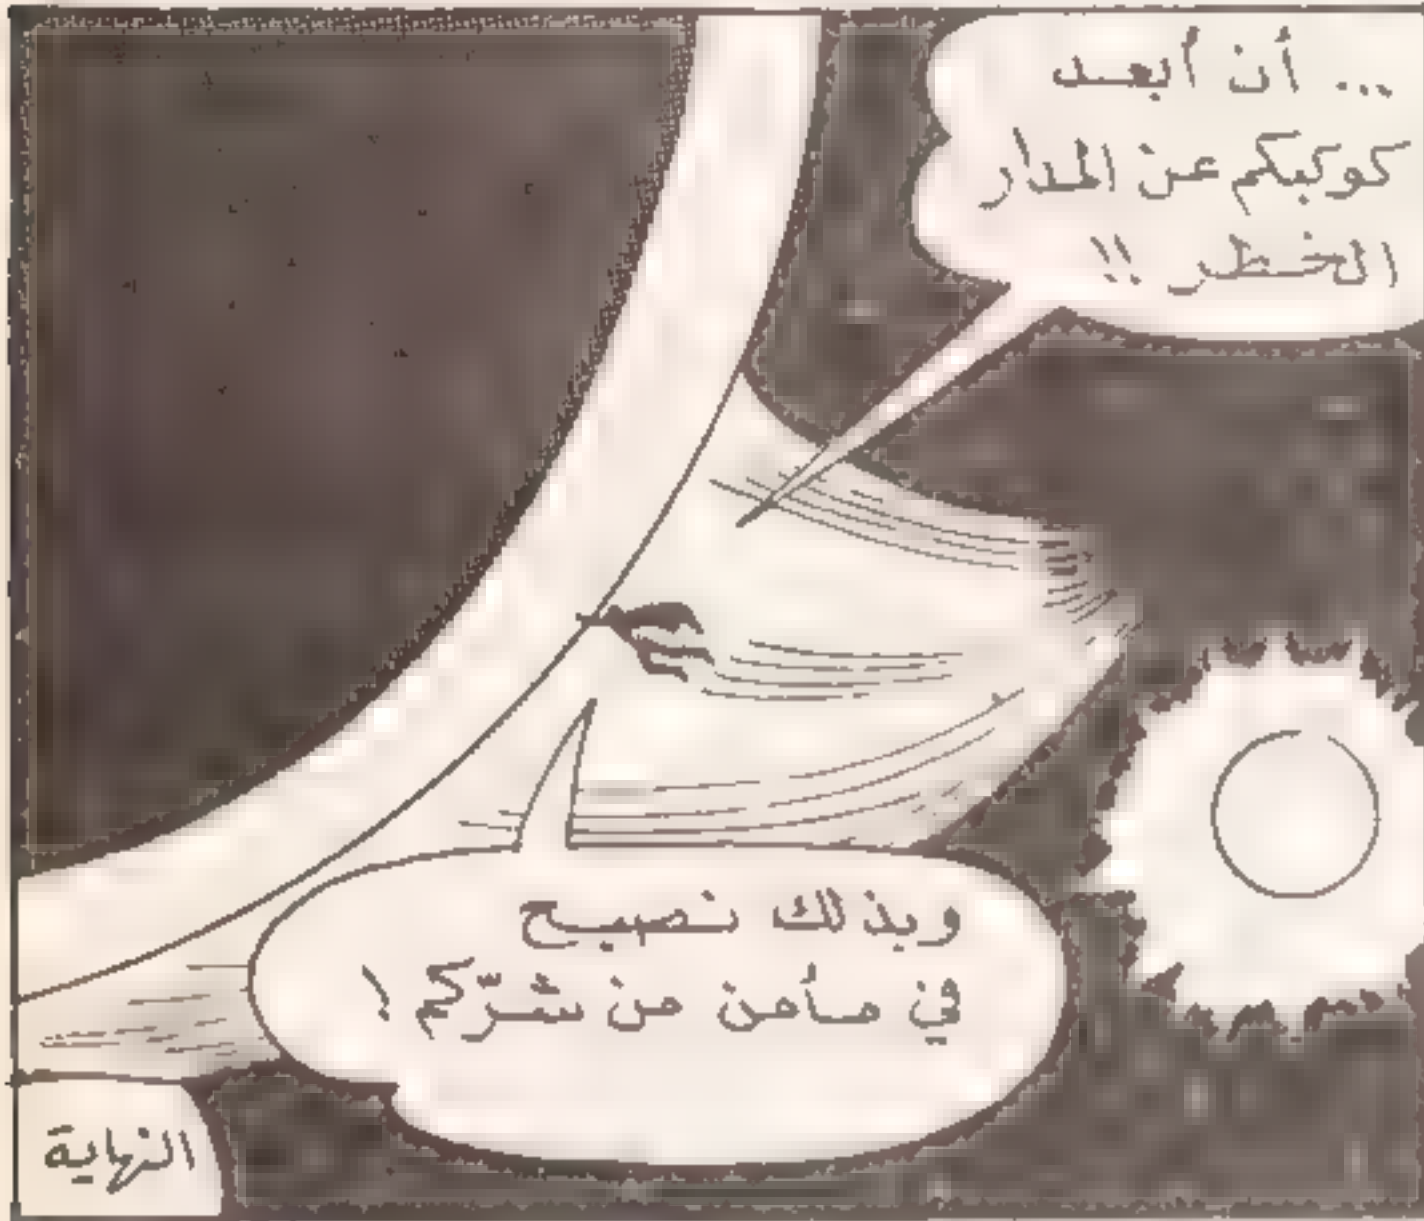 ... أن أبعد
كوكبكم عن المدار
الخطر !!
وبذلك نصبح
في مأمن من شرّكم !
النهاية